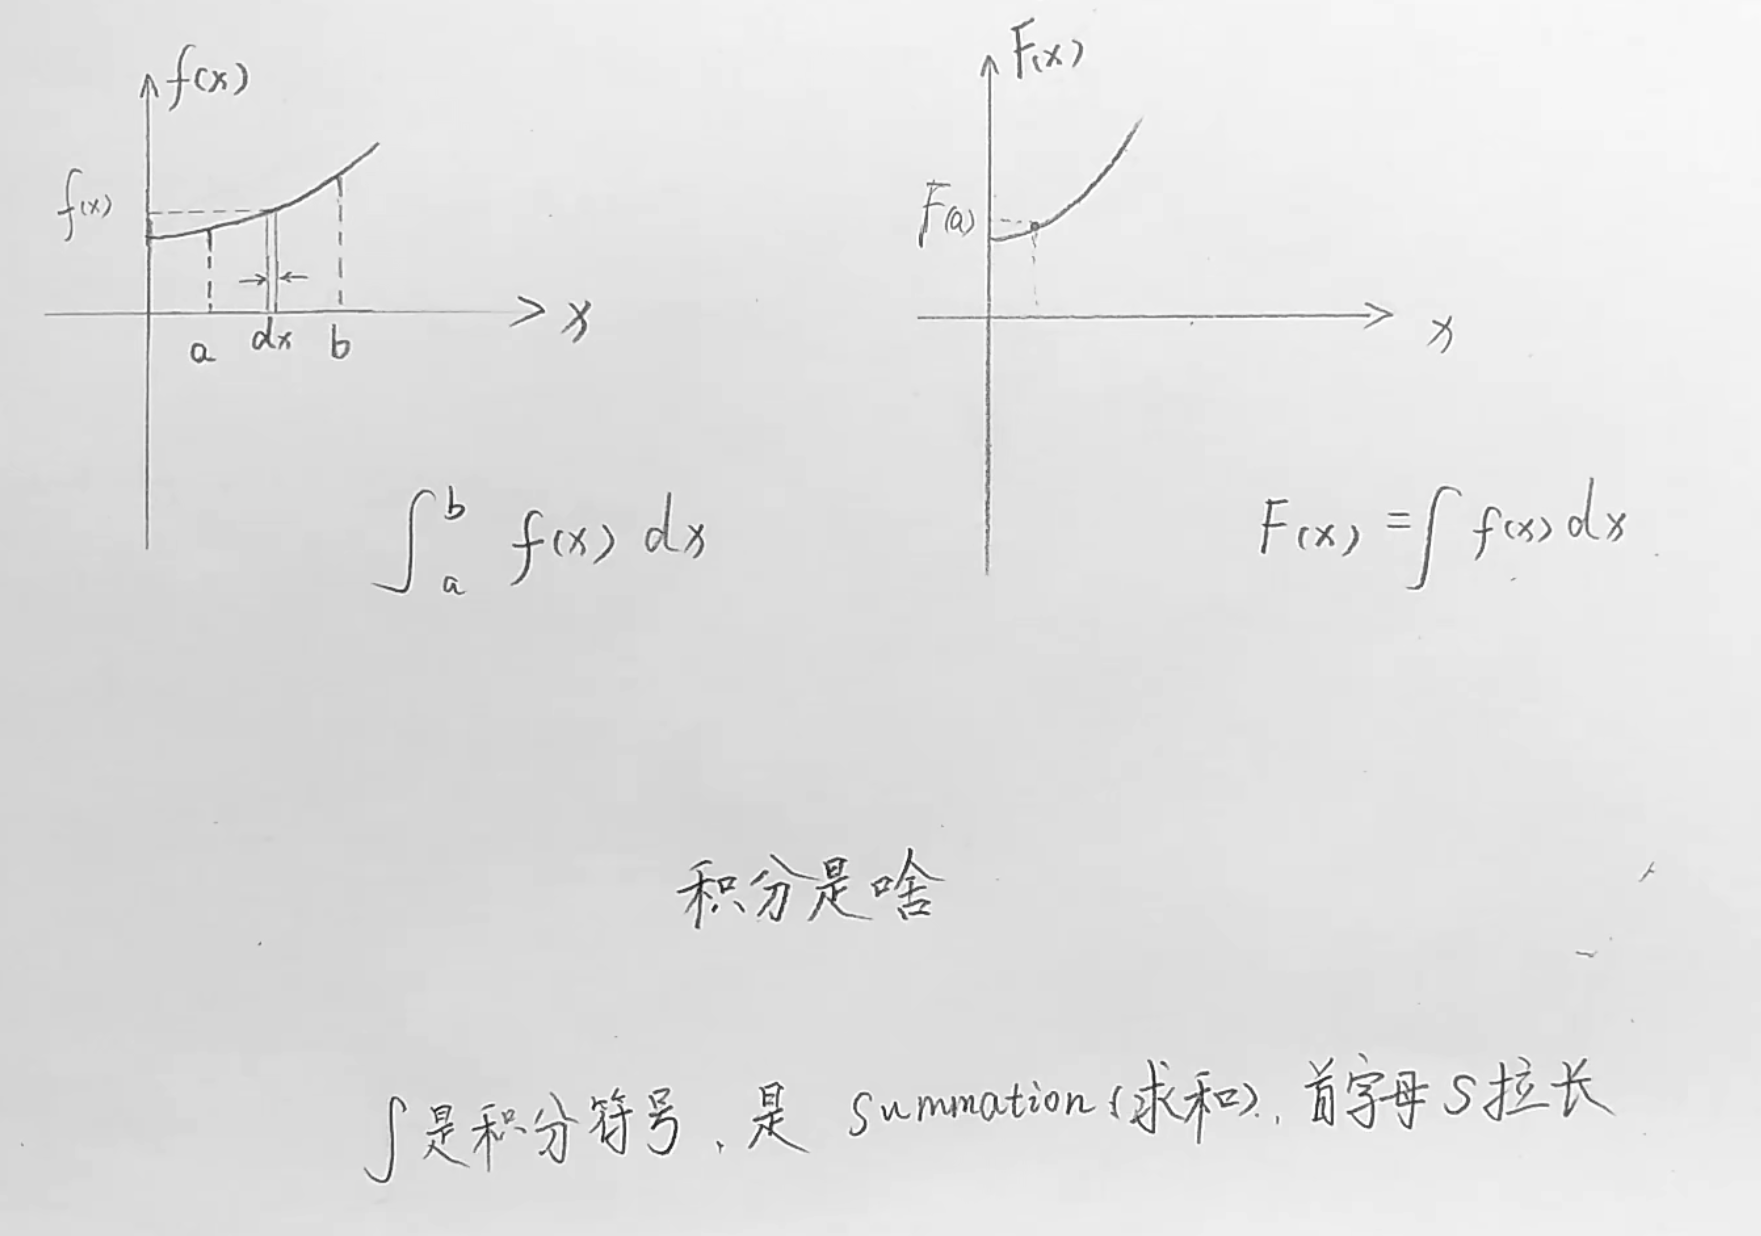 f(x)
F(x)
f(x)
F(a)
a dx b
x
x
∫_a^b f(x) dx
F(x) = ∫ f(x) dx
积分是啥
∫是积分符号，是 summation(求和)，首字母S拉长